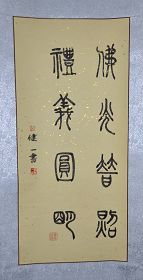 佛光普照
禮義圓明
健一書